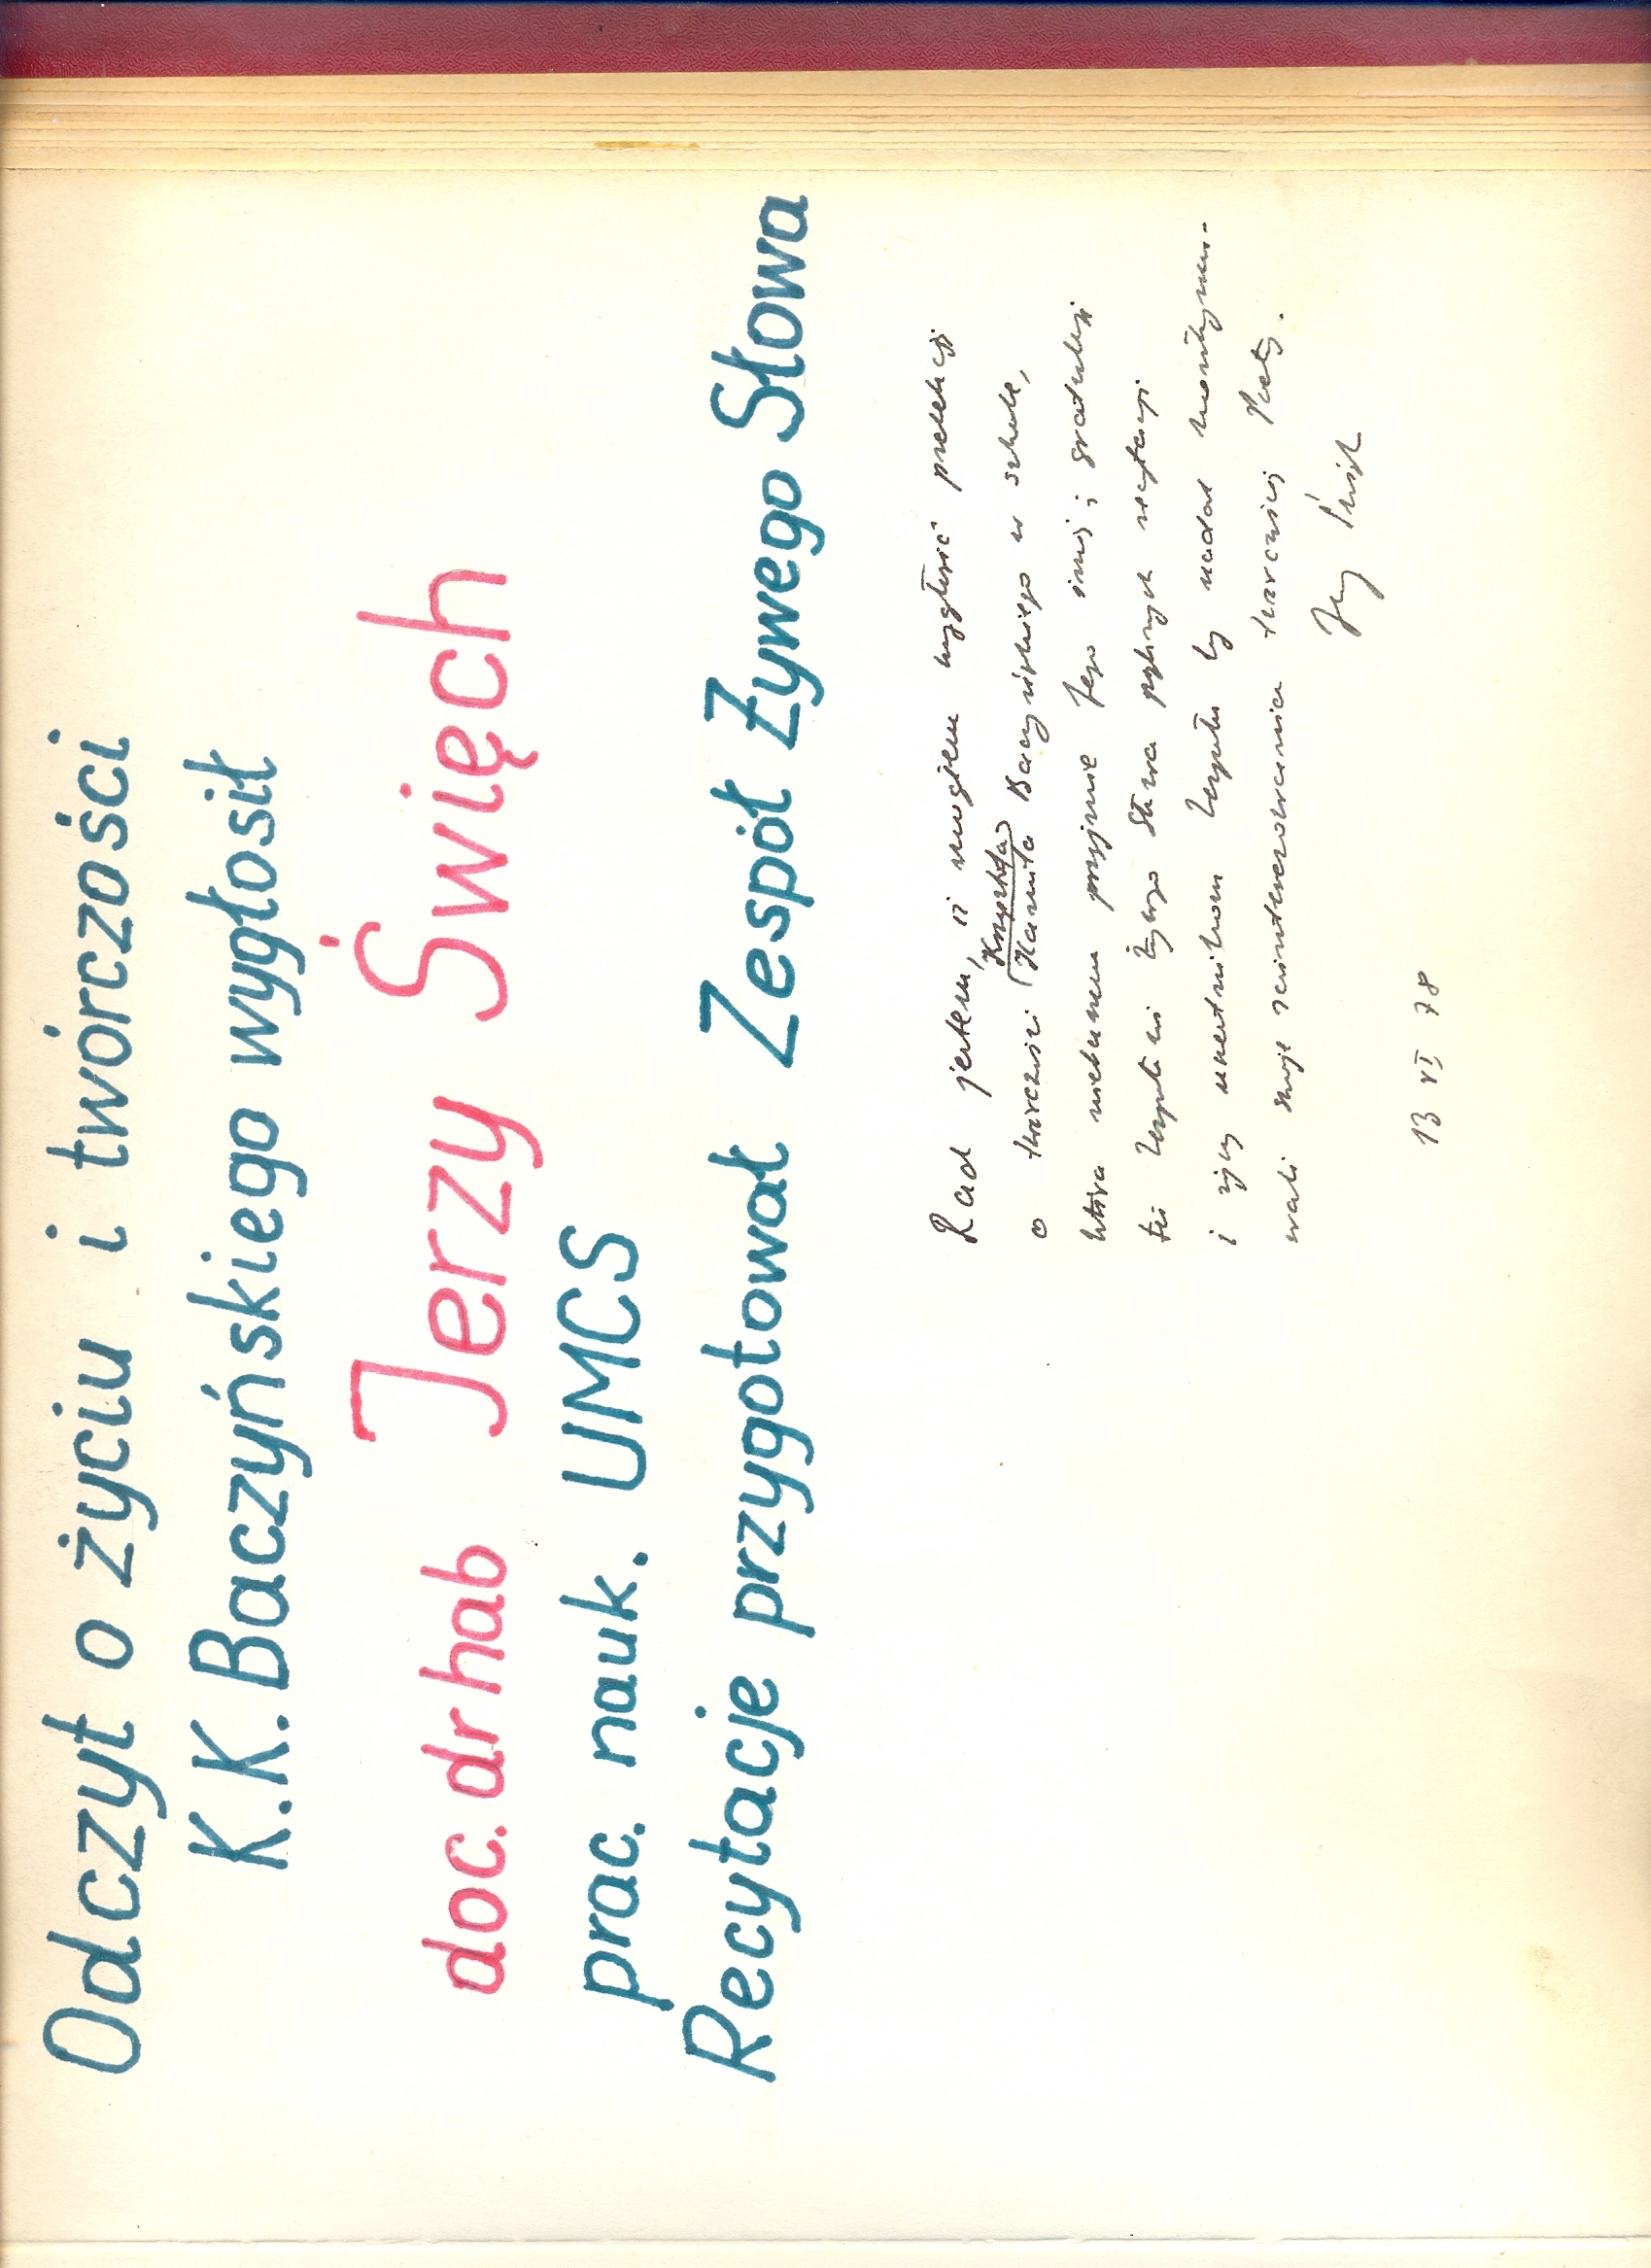 Odczyt o życiu i twórczości
K.K. Baczyńskiego wygłosił
doc. dr hab Jerzy Święch
prac. nauk. UMCS
Recytacje przygotował Zespół Żywego Słowa
Rad jestem, iż mogłem wygłosić prelekcję
Krzysztofa
o twórczości Kamila Baczyńskiego w szkole,
która niebawem przyjmie Jego imię; gratuluję
też Zespołowi Żywego Słowa pięknych recytacji
i życzę uczestnikom Zespołu by nadal kontynuo-
wali swoje zainteresowania twórczością Poety.
Jerzy Święch
13 VI 78